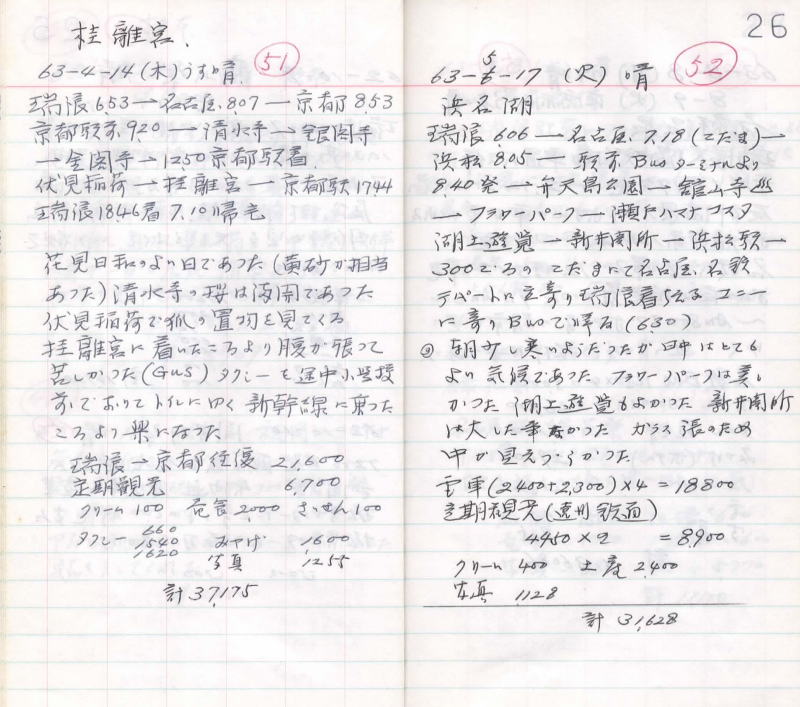 桂離宮.
51
63-4-14(木)うす晴
瑞浪653→名古屋.807→京都853
京都駅前.920→清水寺→銀閣寺
→金閣寺→1250京都駅着
伏見稲荷→桂離宮→京都駅1744
瑞浪1846着7.10帰宅
花見日和のよい日であった(黄砂が相当
あった)清水寺の桜は満開であった
伏見稲荷で狐の置物を見てくる
桂離宮に着いたころより腹が張って
苦しかった(GUS)タクシーを途中小学校
前でおりてトイレに行く新幹線に乗った
ころより楽になった
瑞浪→京都往復 21,600
定期観光 6,700
クリーム100 2,000 さいせん100
タクシー 660 1540 1620 みやげ 1600
写真 1,255
計37,175
26
52
63-5-17(火)晴
浜名湖
瑞浪.606→名古屋.7.18(こだま)→
浜松8.05→駅前Busターミナルより
8.40発→弁天島公園→舘山寺♨
→フラワーパーク→瀬戸ハマナコスタ
湖上遊覧→新井関所→浜松駅→
3,00ごろのこだまにて名古屋.名鉄
デパートに立寄り瑞浪着 ユニー
に寄りBusで(630)
朝少し寒いようだったが日中はとても
よい気候であった フラワーパークは美し
かった 湖上遊覧もよかった 新井関所
は大した事なかった ガラス張のため
中が見えづらかった
電車(2400+2,300)×4=18800
定期観光(遠州鉄道)
4450×2 =8,900
クリーム 400 土産 2,400
写真 1,128
計 31,628